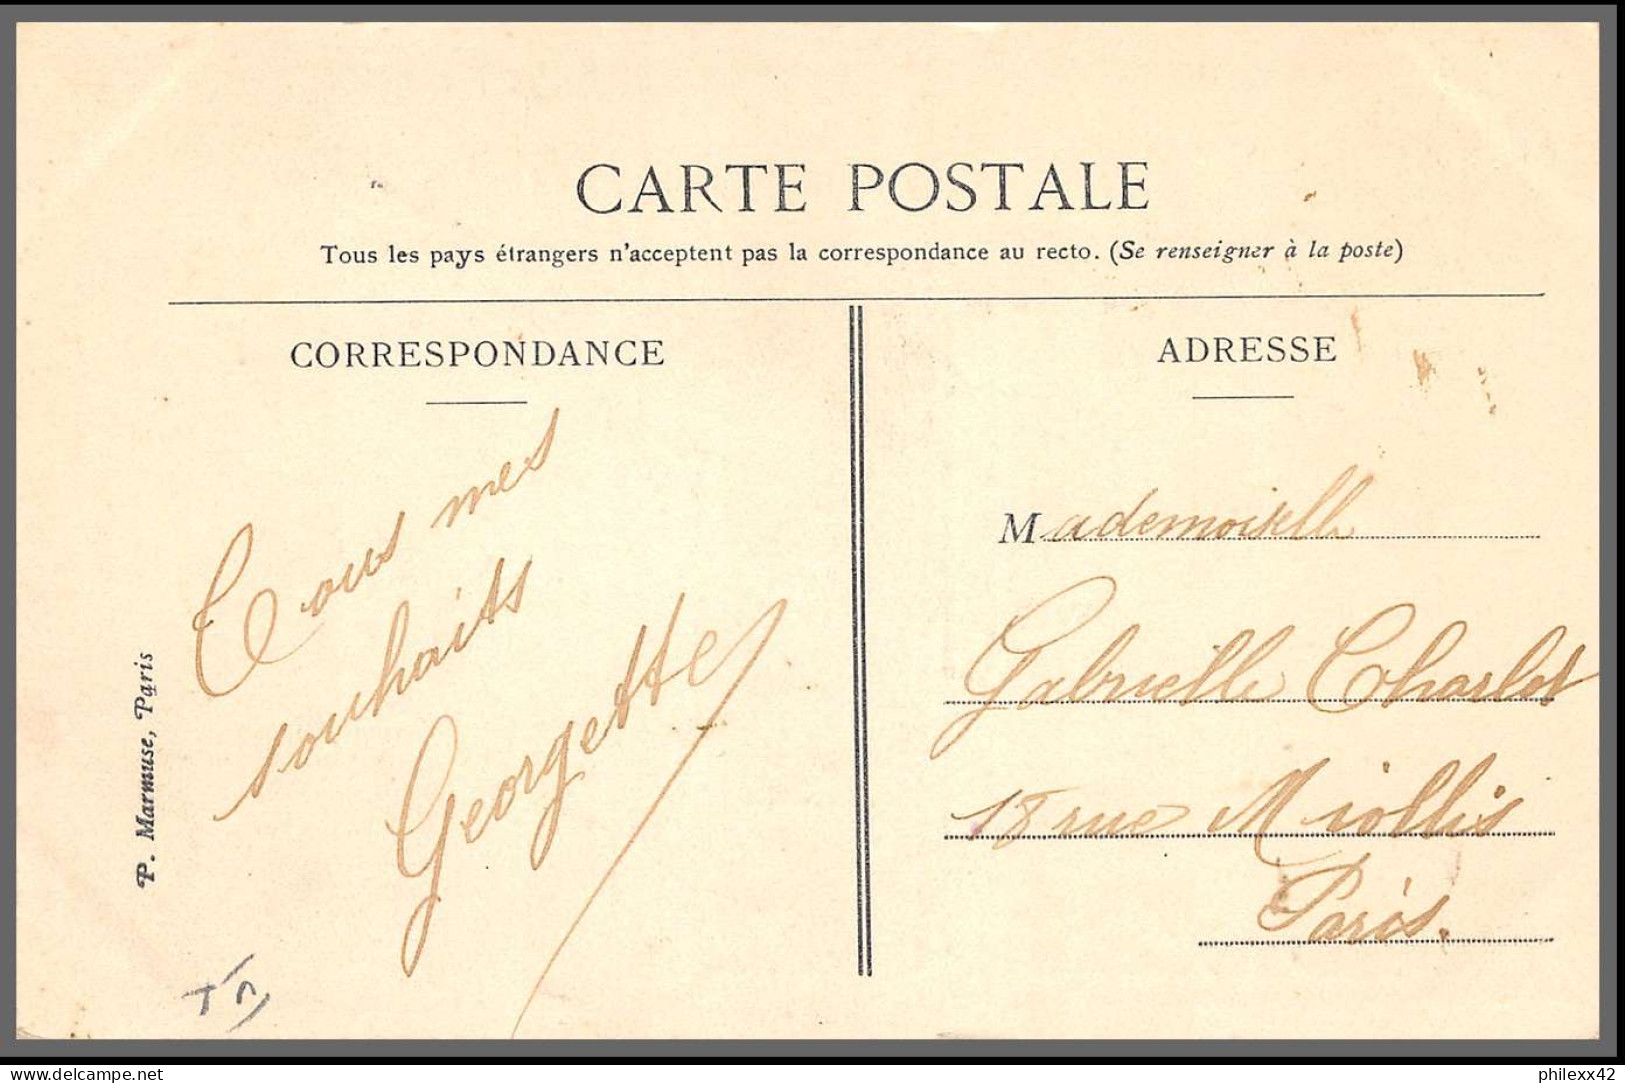 CARTE POSTALE
Tous les pays étrangers n'acceptent pas la correspondance au recto. (Se renseigner à la poste)
CORRESPONDANCE
Tous mes
souhaits
Georgette
P. Marmuse, Paris
ADRESSE
Mademoiselle
Gabrielle Charlet
18 rue Miollis
Paris.
delcampe.net
philexx42